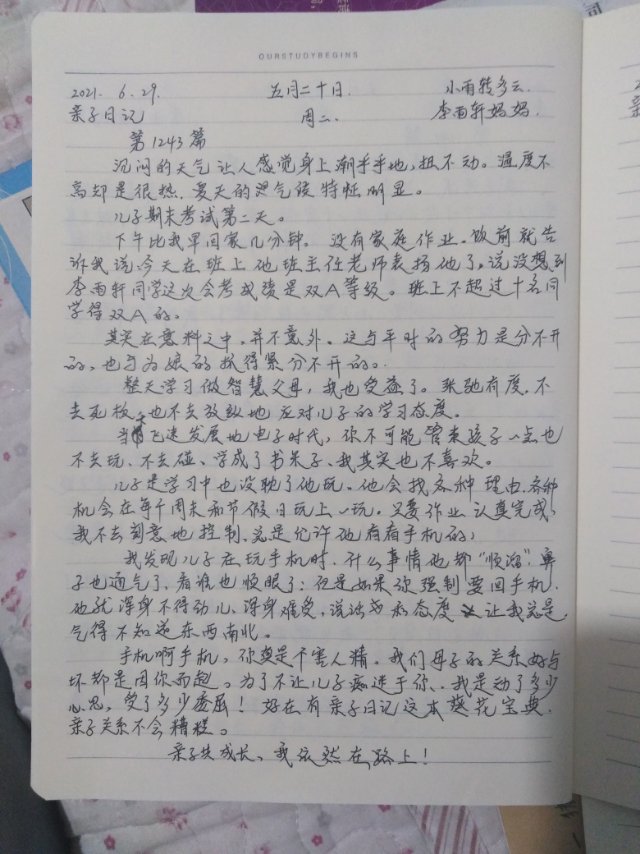 OURSTUDYBEGINS
2021. 6. 29. 五月二十日. 小雨转多云.
亲子日记 周二. 李雨轩妈妈.
第1243篇
沉闷的天气让人感觉身上潮乎乎地,扭不动。温度不
高却是很热.夏天的湿气侵特征明显。
儿子期末考试第二天。
下午比我早回家几分钟。没有家庭作业。饭前就告
诉我说今天在班上他班主任老师表扬他了,说没想到
李雨轩同学这次会考成绩是双A等级。班上不超过十名同
学得双A的。
其实在意料之中,并不意外。这与平时的努力是分不开
的,也与为娘的抓得紧分不开的。
整天学习做智慧父母,我也受益了。张弛有度,不
去死板,也不去放纵地应对儿子的学习态度。
当飞速发展地电子时代,你不可能管束孩子一点也
不去玩、不去碰、学成了书呆子、我其实也不喜欢。
儿子是学习中也没耽了他玩。他会找各种理由.各种
机会在每个周末和节假日玩上一玩。只要作业认真完成,
我不去刻意地控制.总是允许他有看手机的;
我发现儿子在玩手机时.什么事情他都“顺溜”.鼻
子也通气了、看谁也顺眼了;但是如果你强制要回手机.
他就浑身不得劲儿、浑身难受,说话 态度 让我总是
气得不知道东西南北。
手机啊手机,你真是个害人精。我们母子的关系好与
坏却是因你而起。为了不让儿子痴迷于你、我是动了多少
心思,受了多少委屈!好在有亲子日记这本葵花宝典.
亲子关系不会糟糕。
亲子共成长、我依然在路上!